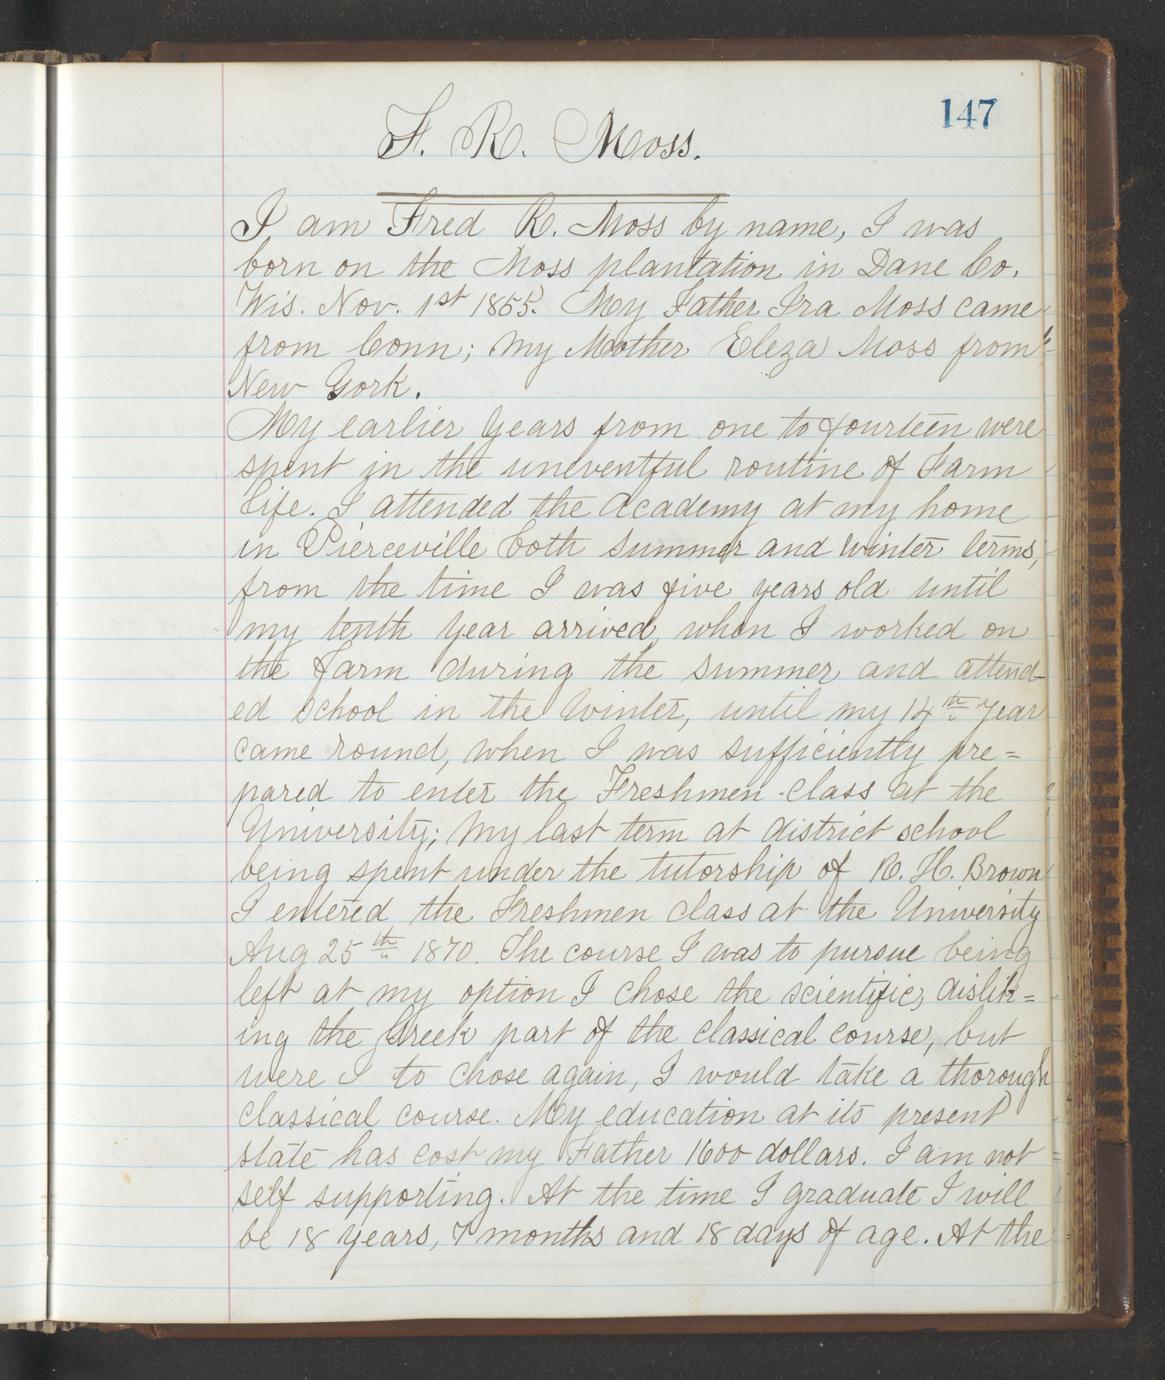 147
F. R. Moss.
I am Fred R. Moss by name, I was
born on the Moss plantation in Dane Co.
Wis. Nov. 1st 1855. My Father Ira Moss came
from Conn; my Mother Eleza Moss from
New York.
My earlier years from one to fourteen were
spent in the uneventful routine of Farm
life. I attended the Academy at my home
in Pierceville both summer and winter terms,
from the time I was five years old until
my tenth year arrived, when I worked on
the farm during the summer and attend-
ed school in the Winter, until my 14th year
came round, when I was sufficiently pre=
pared to enter the Freshmen-class at the
University; My last term at district school
being spent under the tutorship of R. H. Brown
I entered the Freshmen class at the University
Aug 25th 1870. The course I was to pursue being
left at my option I chose the scientific, dislik=
ing the Greek part of the classical course, but
were I to chose again, I would take a thorough
classical course. My education at its present
state has cost my Father 1600 dollars. I am not
self supporting. At the time I graduate I will
be 18 years, 7 months and 18 days of age. At the